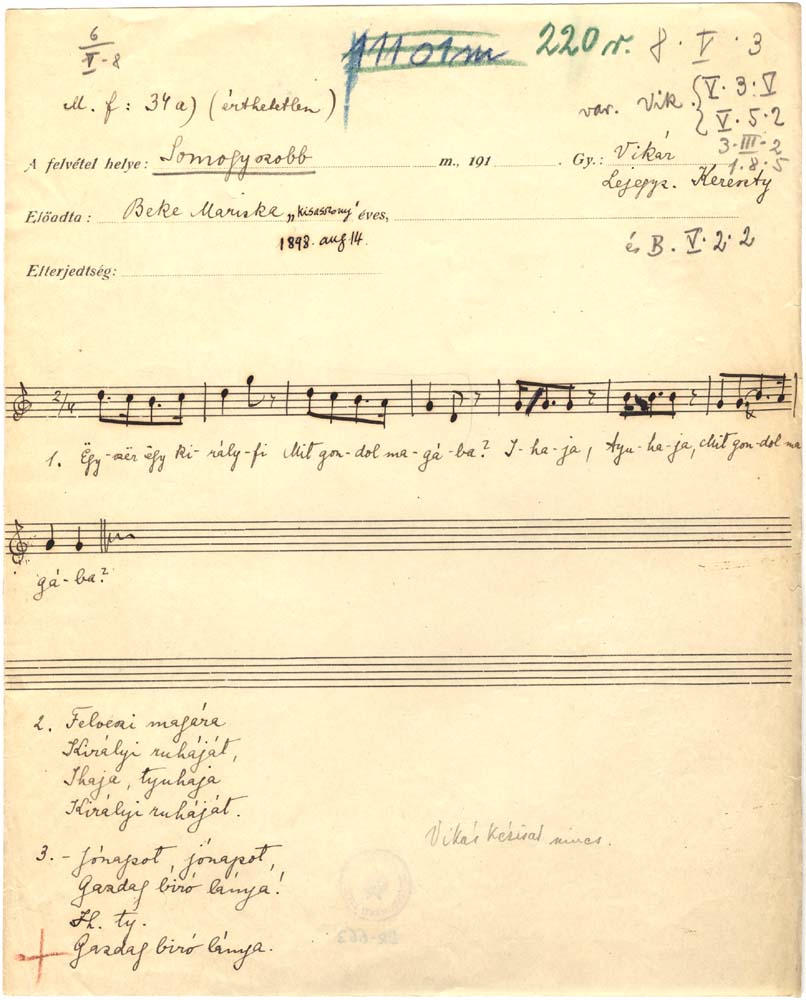 6
V-8
11101m
220 r.
8. V. 3
M. f: 34a) (érthetetlen)
var. Vik. V. 3. V
V. 5. 2
3. III. 2
1. 8. 5
A felvétel helye: Somogyszobb m., 191 Gy.: Vikár
Lejegyz. Kereszty
Előadta: Beke Mariska „kisasszony" éves,
1898. aug 14.
és B. V. 2. 2
Elterjedtség:
2/4
1. Ëgy-szër ëgy ki-rály-fi Mit gon-dol ma-gá-ba? I-ha-ja, Tyu-ha-ja, Mit gon-dol ma
gá-ba?
2. Felveszi magára
Királyi ruháját,
Ihaja, tyuhaja
Királyi ruháját.
3. - Jónapot, jónapot,
Gazdag biró lánya!
Ih. ty.
Gazdag biró lánya.
Vikár kézirat nincs.